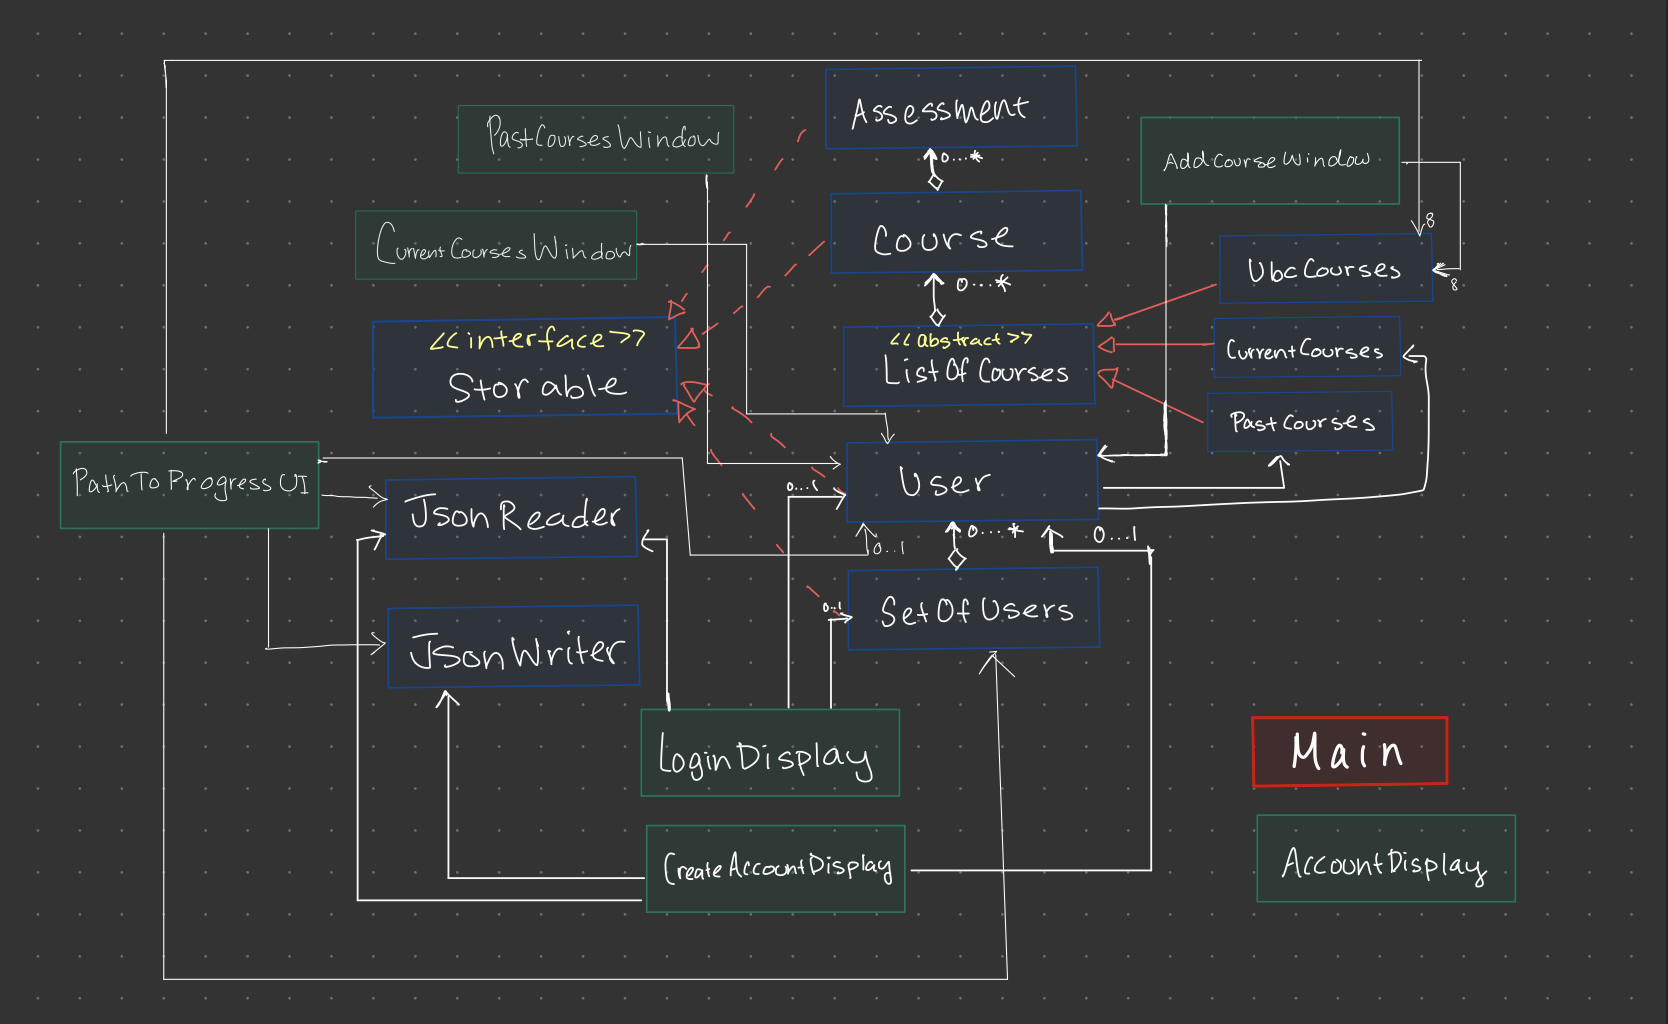 Assessment
0...*
PastCoursesWindow
AddCourseWindow
Course
0...*
CurrentCoursesWindow
8
UbcCourses
8
<<interface>>
Storable
<<abstract>>
ListOfCourses
CurrentCourses
PastCourses
PathToProgressUI
User
0...1
JsonReader
0...*
0...1
0...1
SetOfUsers
0...1
JsonWriter
LoginDisplay
Main
CreateAccountDisplay
AccountDisplay